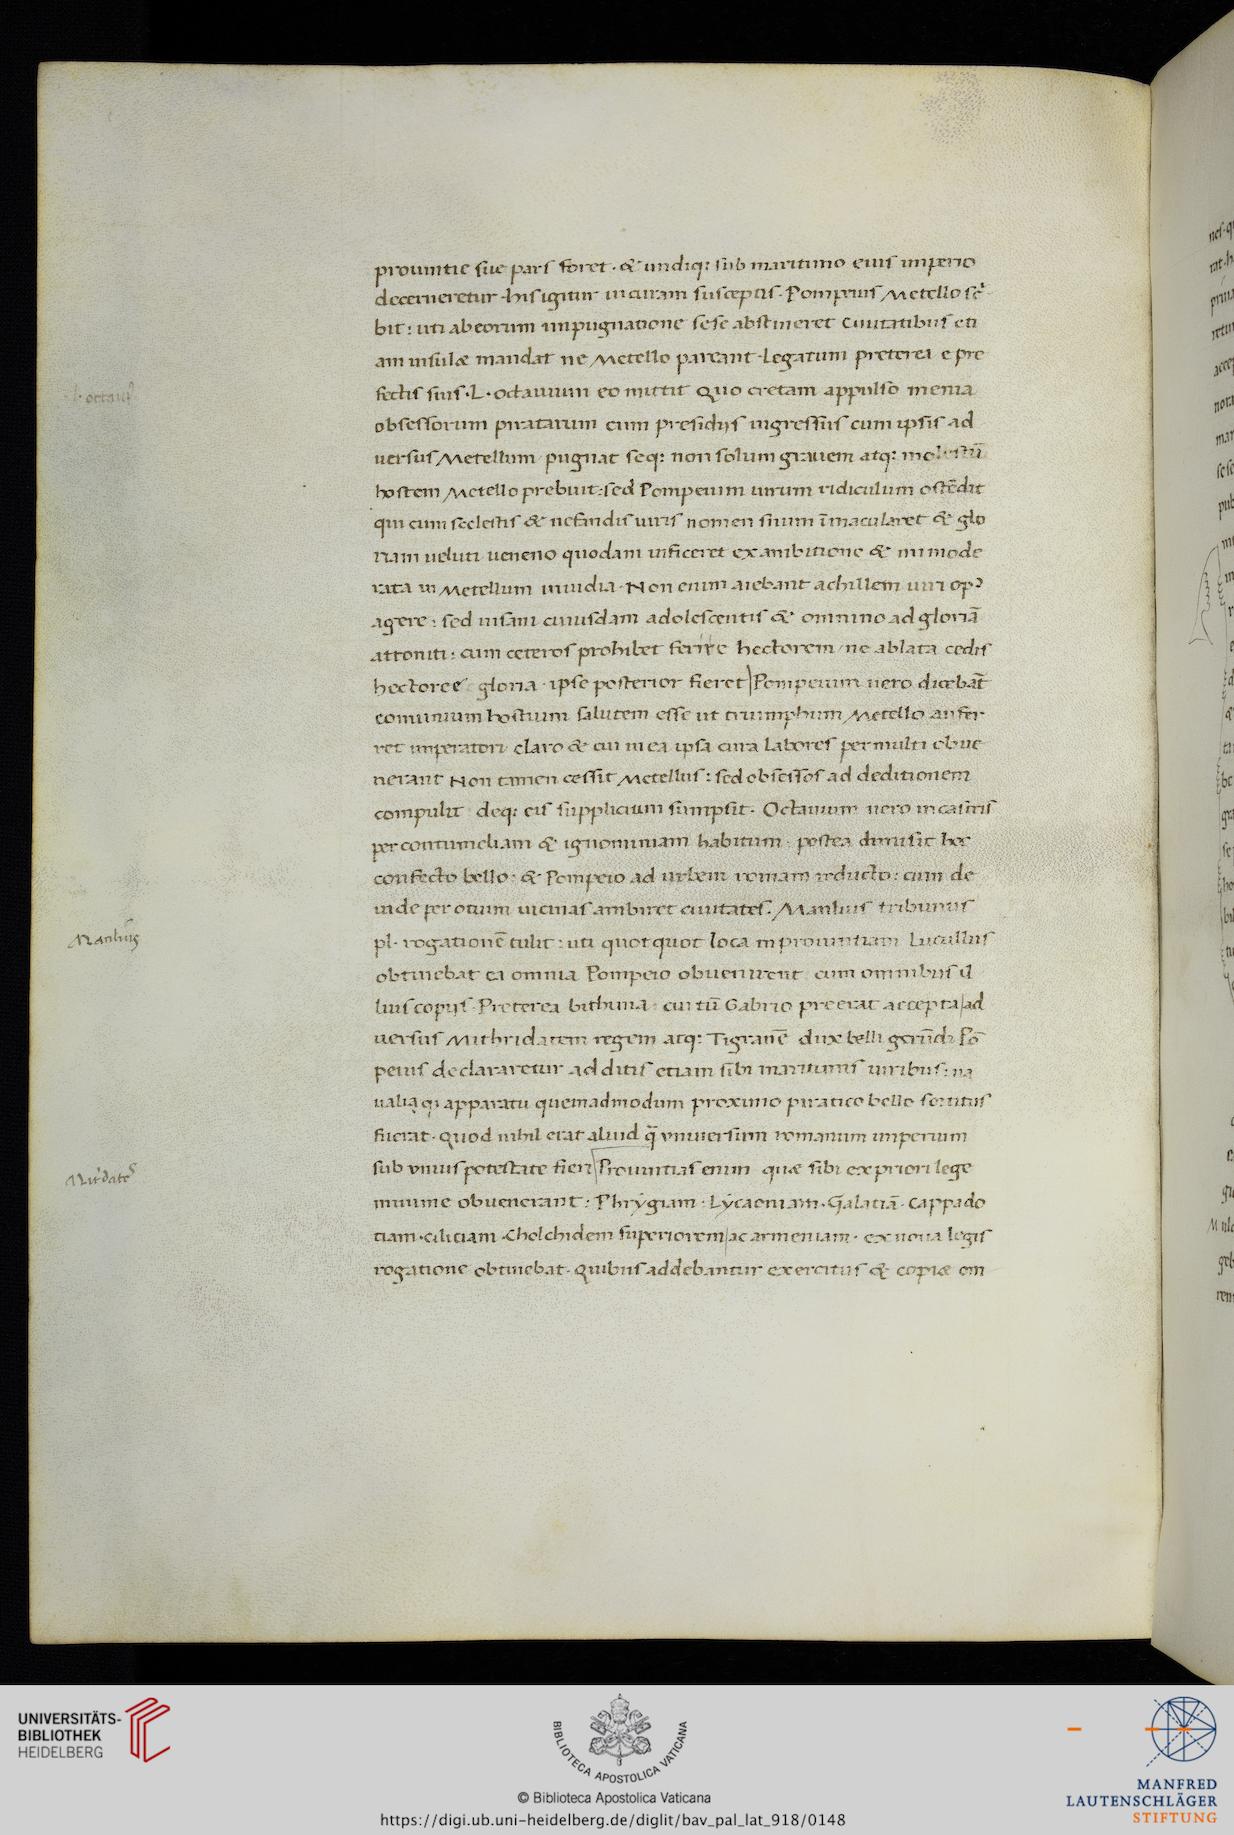 prouintie sue pars foret · & undiq: sub maritimo eius imperio
decerneretur · his igitur in curam susceptis · Pompeius Metello sc̔
bit : uti ab eorum impugnatione sese abstineret Ciuitatibus eti
am insulæ mandat ne Metello pareant · Legatum preterea e pre
fectis suis · L · octauium eo mittit Quo cretam appulso menia
obsessorum piratarum cum presidijs ingressus cum ipsis ad
uersus Metellum pugnat seq: non solum grauem atq: molestū
hostem Metello prebuit : sed Pompeium uirum ridiculum ostēdit
qui cum scelestis & nefandis uiris nomen suum īmacularet & glo
riam ueluti ueneno quodam inficeret ex ambitione & inmode
rata in Metellum inuidia · Non enim aiebant achillem uiri opꝰ
agere : sed insani cuiusdam adolescentis & omnino ad gloriā
attoniti : cum ceteros prohibet ferire hectorem / ne ablata cedis
hectoreę gloria · ipse posterior fieret Pompeium uero dicebāt
comunium hostium salutem esse ut triumphum Metello aufer
ret imperatori claro & cui in ea ipsa cura labores permulti obue
nerant Non tamen cessit Metellus : sed obsessos ad deditionem
compulit deq: eis supplicium sumpsit · Octauium uero in castris
per contumeliam & ignominiam habitum · postea dimisit hoc
confecto bello : & Pompeio ad urbem romam reducto : cum de
inde per otium uicinas ambiret ciuitates · Manlius tribunus
pl · rogationē tulit : uti quotquot loca in prouintiam Lucullus
obtinebat ea omnia Pompeio obuenirent cum omnibus il
lius copijs · Preterea bithinia · cui tū Gabrio preerat accepta ad
uersus Mithridatem regem atq: Tigranē dux belli gerūdi Pō
peius declararetur additis etiam sibi maritimis uiribus : na
ualiq; apparatu quemadmodum proximo piratico bello sortitus
fuerat · Quod nihil erat aliud q̄ vniuersum romanum imperium
sub vnius potestate fieri Prouintias enim quæ sibi ex priori lege
minime obuenerant : Phrẏgiam : Lẏcaoniam · Galatiā · Cappado
tiam · ciliciam · Cholchidem superiorem ac armeniam · ex noua legis
rogatione obtinebat · Quibus addebantur exercitus & copiæ om
L · octauiꝰ
Manlius
UNIVERSITÄTS-
BIBLIOTHEK
HEIDELBERG
BIBLIOTECA APOSTOLICA VATICANA
© Biblioteca Apostolica Vaticana
https://digi.ub.uni-heidelberg.de/diglit/bav_pal_lat_918/0148
MANFRED
LAUTENSCHLÄGER
STIFTUNG